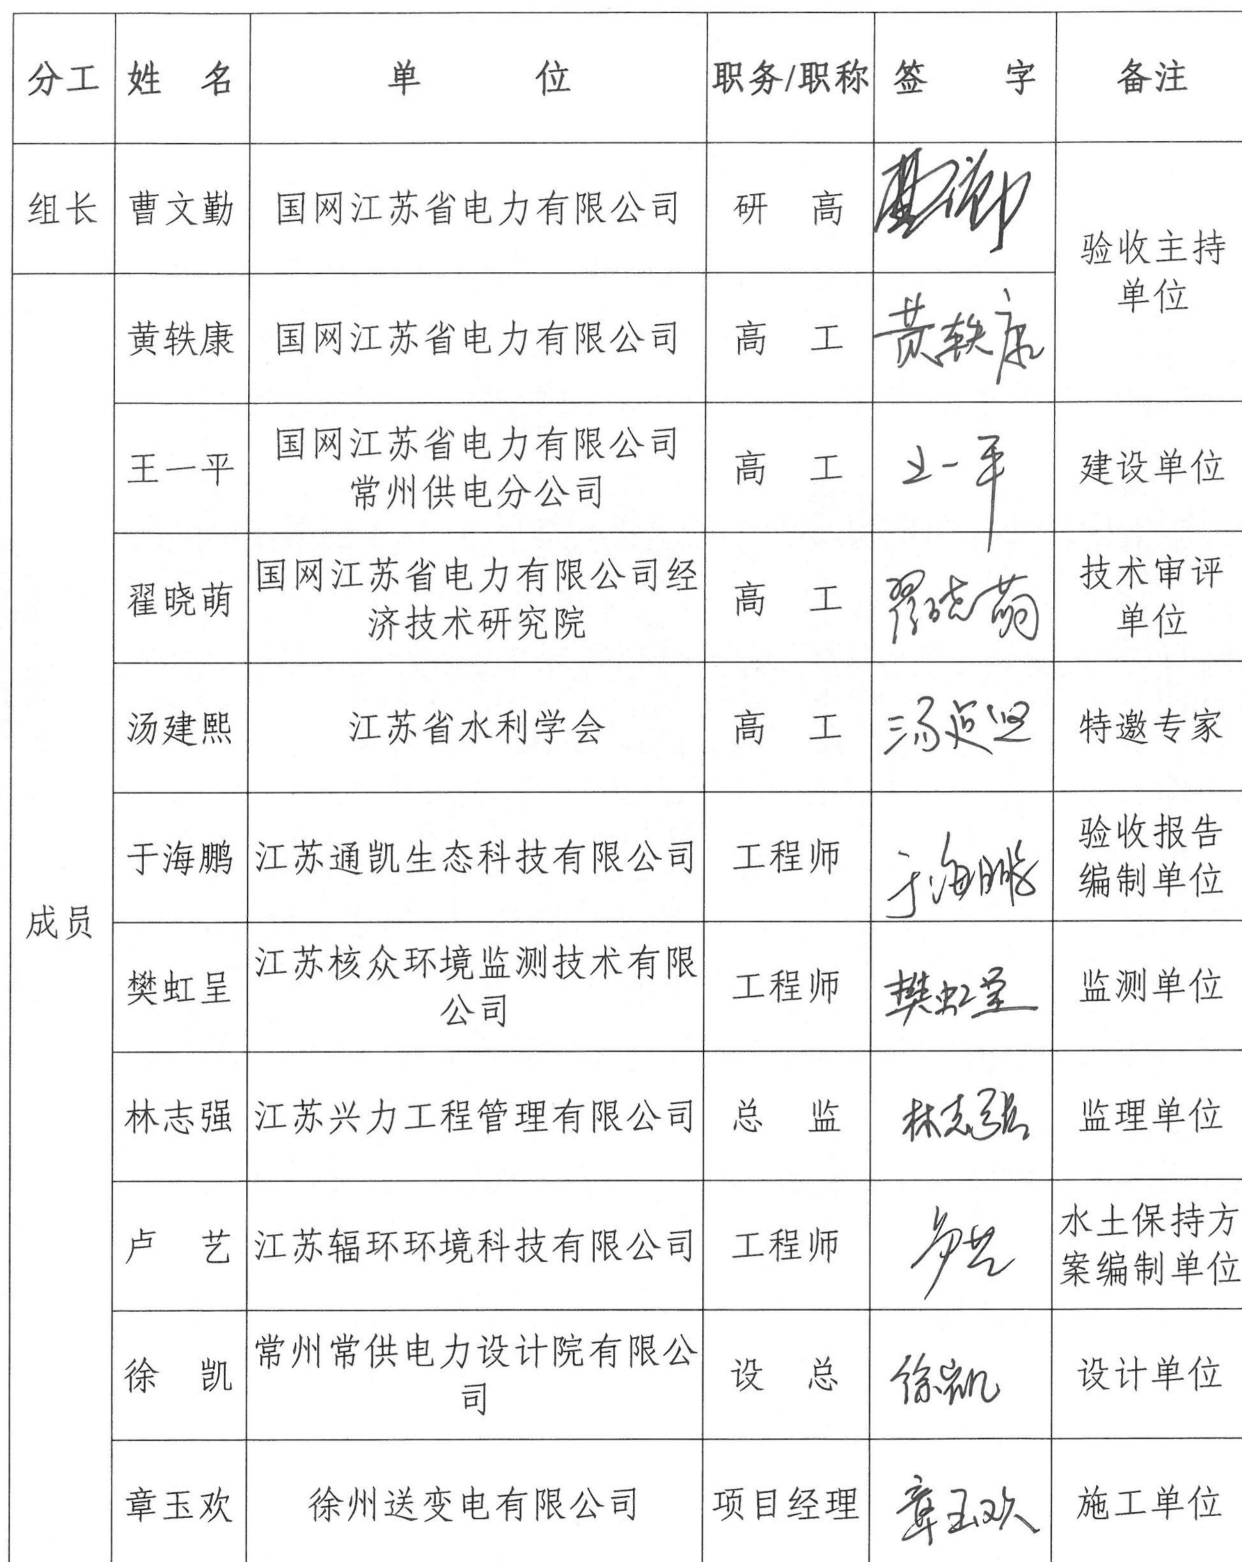 分工 姓 名 单 位 职务/职称 签 字 备注
组长 曹文勤 国网江苏省电力有限公司 研 高
验收主持
单位
成员
黄轶康 国网江苏省电力有限公司 高 工 黄轶康
王一平 国网江苏省电力有限公司
常州供电分公司 高 工 王一平 建设单位
翟晓萌 国网江苏省电力有限公司经
济技术研究院 高 工 翟晓萌 技术审评
单位
汤建熙 江苏省水利学会 高 工 特邀专家
于海鹏 江苏通凯生态科技有限公司 工程师 于海鹏 验收报告
编制单位
樊虹呈 江苏核众环境监测技术有限
公司 工程师 樊虹呈 监测单位
林志强 江苏兴力工程管理有限公司 总 监 林志强 监理单位
卢 艺 江苏辐环环境科技有限公司 工程师 卢艺 水土保持方
案编制单位
徐 凯 常州常供电力设计院有限公
司 设 总 徐凯 设计单位
章玉欢 徐州送变电有限公司 项目经理 章玉欢 施工单位